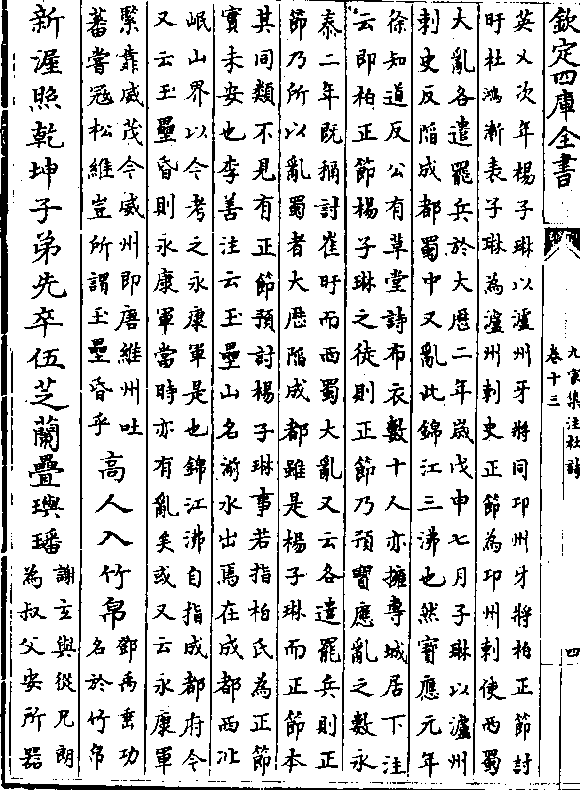 欽定四庫全書
九家集注杜詩
卷十三
四
英乂次年楊子琳以瀘州牙將同邛州牙將柏正節討
旰杜鴻漸表子琳為瀘州刺史正節為邛州刺使西蜀
大亂各遣罷兵於大厯二年歲戊申七月子琳以瀘州
刺史反陷成都蜀中又亂此錦江三沸也然寳應元年
徐知道反公有草堂詩布衣數十人亦擁專城居下注
云即柏正節楊子琳之徒則正節乃預寳應亂之數永
泰二年既稱討崔旰而西蜀大亂又云各遣罷兵則正
節乃所以亂蜀者大厯陷成都雖是楊子琳而正節本
其同類不見有正節預討楊子琳事若指柏氏為正節
實未安也李善注云玉壘山名湔水出焉在成都西北
岷山界以今考之永康軍是也錦江沸自指成都府今
又云玉壘昏則永康軍當時亦有亂矣或又云永康軍
緊靠威茂今威州即唐維州吐
蕃嘗冦松維豈所謂玉壘昏乎
高人入竹帛
鄧禹垂功
名於竹帛
新渥照乾坤子弟先卒伍芝蘭疊璵璠
謝玄與從兄朗
為叔父安所器